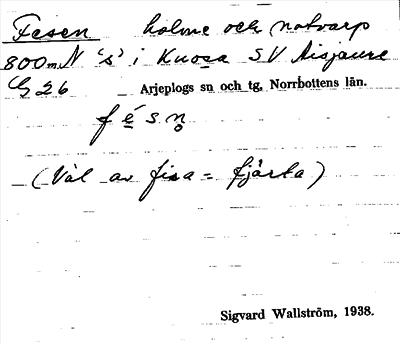 Fesen holme och notvarp
800m N 's' i Kuosa SV Aisjaure
G 26 Arjeplogs sn och tg, Norrbottens län.
f é s n̥
(Väl av fisa = fjärta)
Sigvard Wallström, 1938.